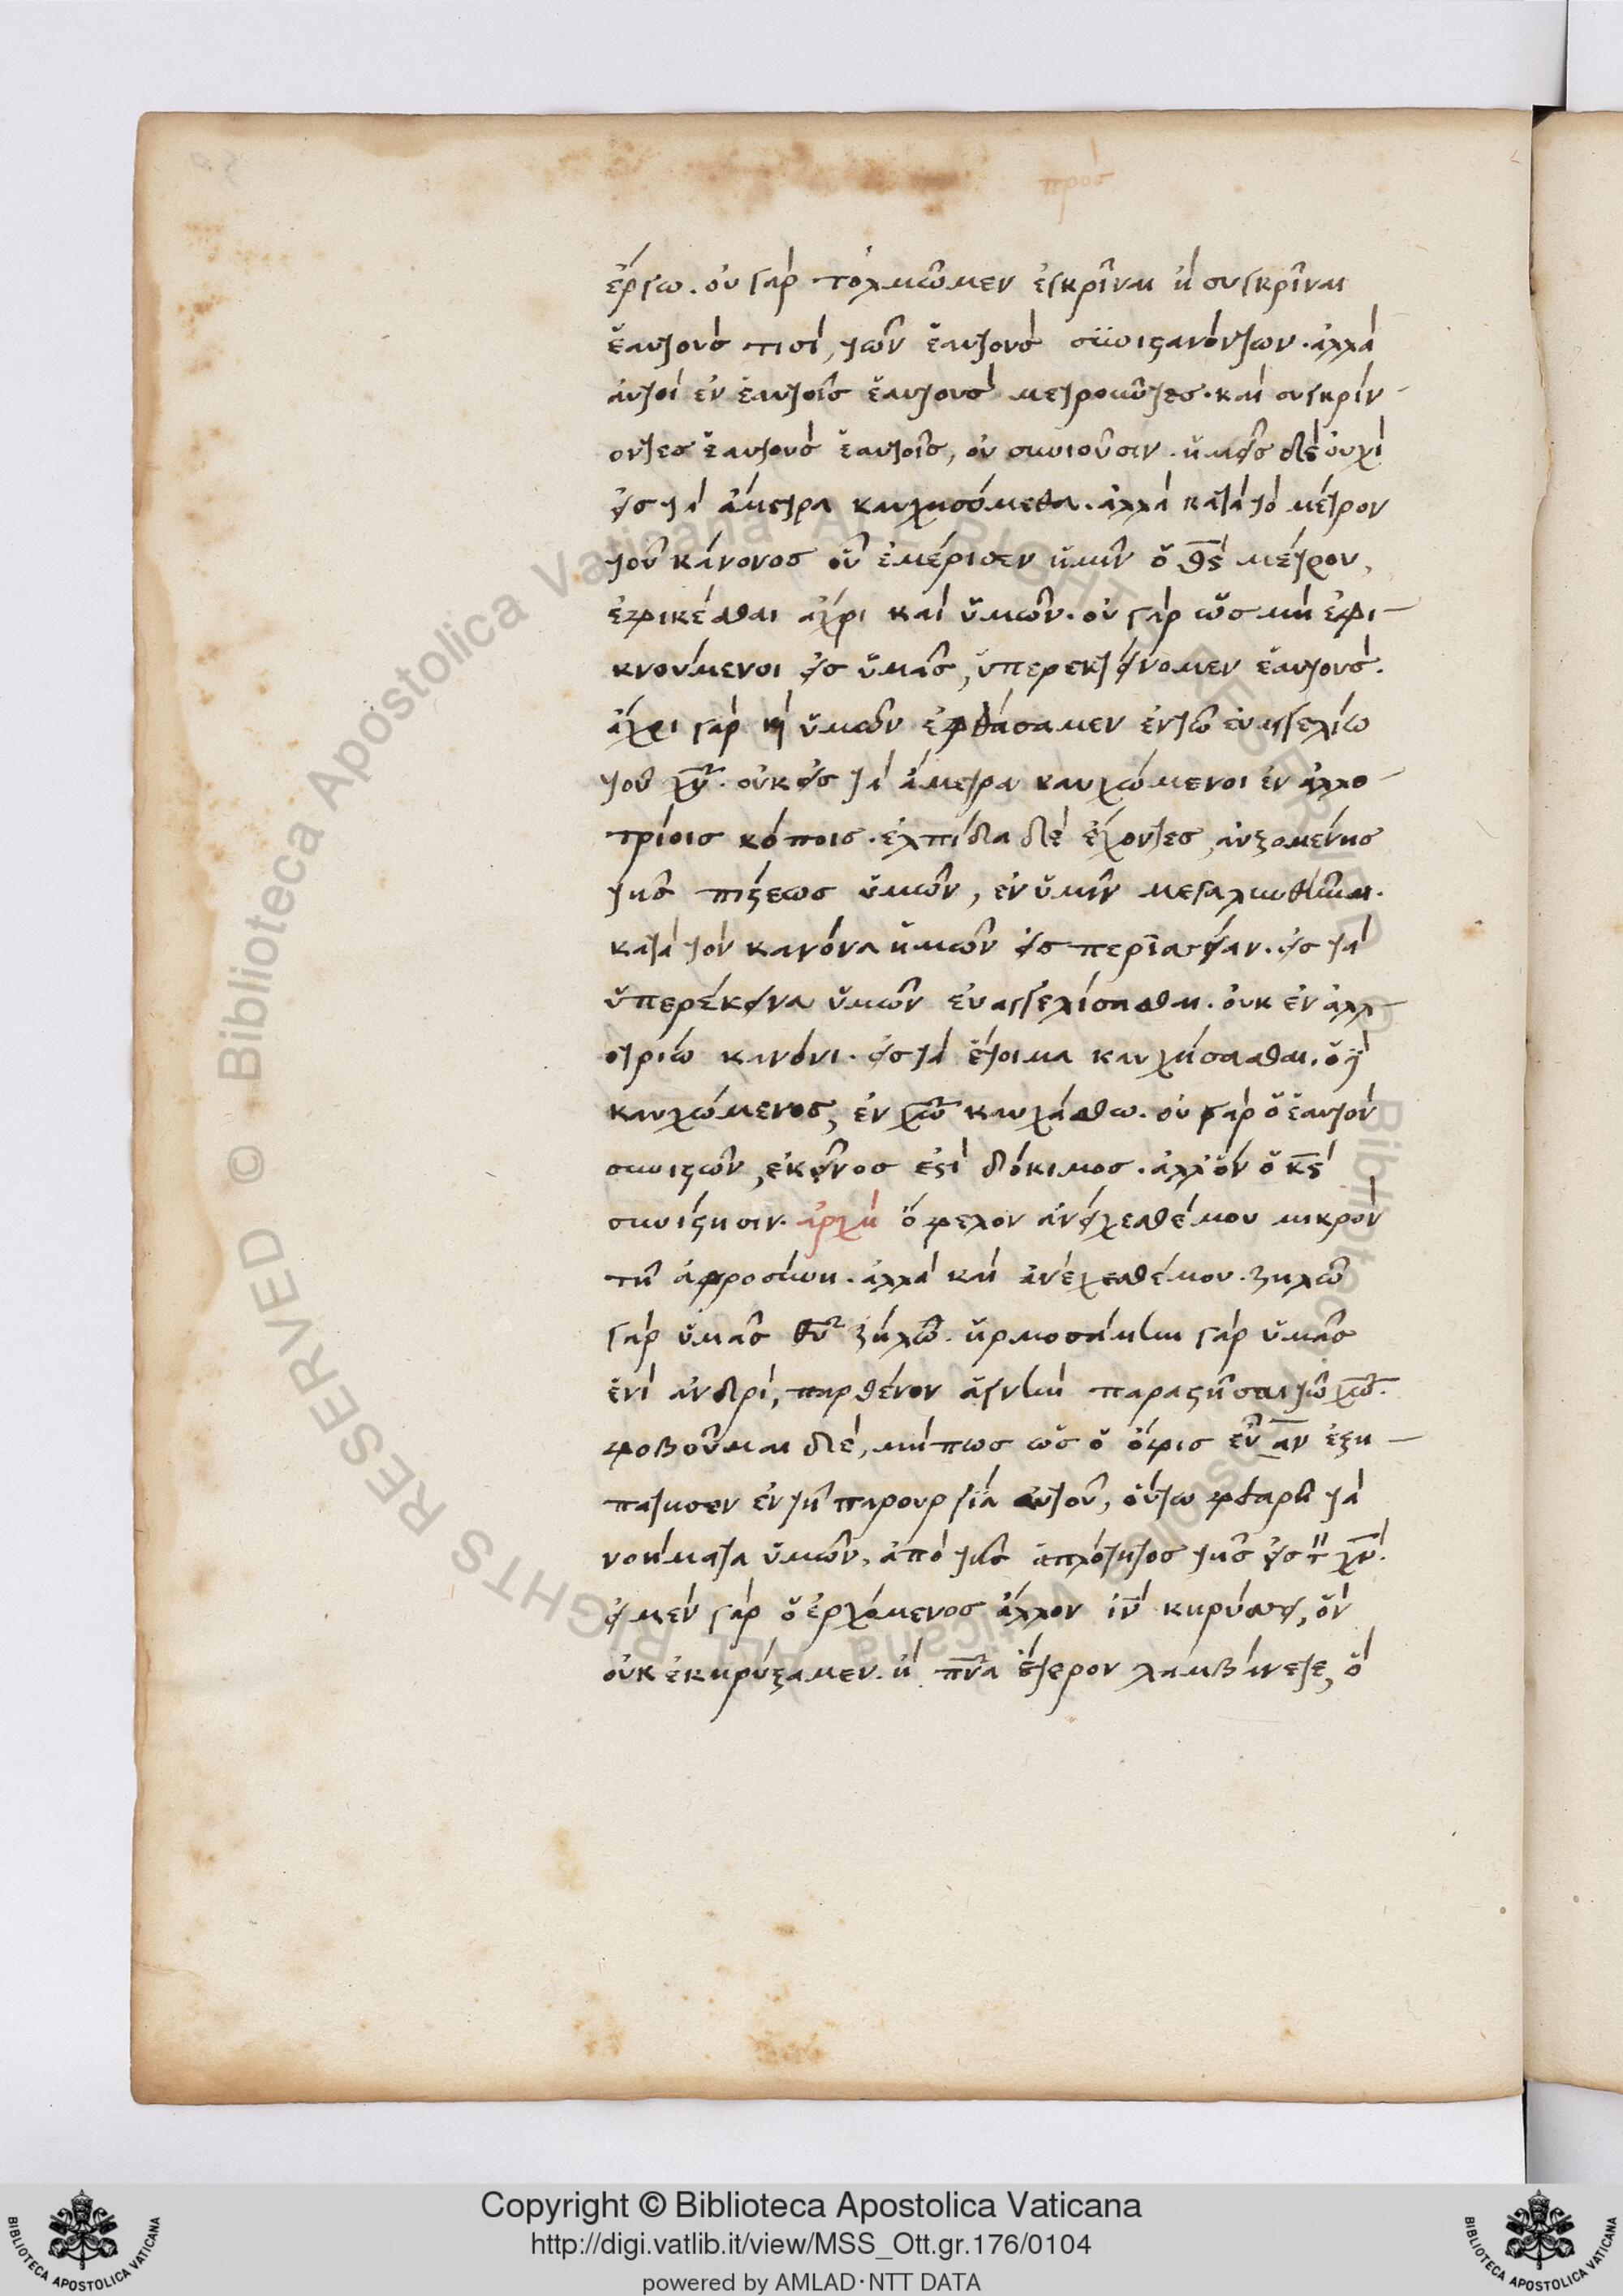 προσ
ἔργω. οὐ γὰρ τολμῶμεν ἐγκρῖναι ἢ συγκρῖναι
ἑαυτοὺσ τισὶ, τῶν ἑαυτοὺσ συνιστανόντων. ἀλλὰ
αὐτοὶ ἐν ἑαυτοῖσ ἑαυτοὺσ μετροῦντεσ. καὶ συγκρίν-
οντεσ ἑαυτοὺσ ἑαυτοῖσ, οὐ συνιοῦσιν. ἡμεῖσ δὲ οὐχὶ
εἰσ τὰ ἄμετρα καυχησόμεθα. ἀλλὰ κατὰ τὸ μέτρον
τοῦ κάνονοσ οὗ ἐμέρισεν ἡμῖν ὁ θσ μέτρου,
ἐφικέσθαι ἄχρι καὶ ὑμῶν. οὐ γὰρ ὡσ μὴ ἐφι-
κνούμενοι εἰσ ὑμᾶσ, ὑπερεκτείνομεν ἑαυτούσ.
ἄχρι γὰρ καὶ ὑμῶν ἐφθάσαμεν ἐν τῶ εὐαγγελίω
τοῦ χυ. οὐκ εἰσ τὰ ἄμετρα καυχώμενοι ἐν ἀλλο-
τρίοισ κόποισ. ἐλπίδα δὲ ἔχοντεσ, αὐξομένησ
τῆσ πίστεωσ ὑμῶν, ἐν ὑμῖν μεγαλυνθῆναι.
κατὰ τὸν κανόνα ἡμῶν εἰσ περϊσσείαν. εἰσ τὰ
ὑπερέκεινα ὑμῶν εὐαγγελίσασθαι. οὐκ ἐν ἀλλ-
οτρίω κανόνι. εἰσ τὰ ἕτοιμα καυχήσασθαι. ὁ δὲ
καυχώμενοσ, ἐν κω καυχάσθω. οὐ γὰρ ὁ ἑαυτὸν
συνιστῶν, ἐκεῖνοσ ἐστὶ δόκιμοσ. ἀλλ' ὃν ὁ κσ
συνίστησιν. ἀρχὴ ὄφελον ἀνείχεσθέ μου μικρὸν
τῆ ἀφροσύνη. ἀλλὰ καὶ ἀνέχεσθέ μου. ζηλῶ
γὰρ ὑμᾶσ θυ ζήλω. ἡρμοσάμην γὰρ ὑμᾶσ
ἑνὶ ἀνδρὶ, παρθένον ἁγνὴν παραστῆσαι τῶ χω.
φοβοῦμαι δὲ, μήπωσ ὡσ ὁ ὄφισ εὔαν ἐξη-
πατησεν ἐν τῆ πανουργία αὐτοῦ, οὕτω φθαρῆ τὰ
νοήματα ὑμῶν, ἀπὸ τῆσ ἁπλότητοσ τῆσ εἰσ τὸν χν.
εἰ μὲν γὰρ ὁ ἐρχόμενοσ ἄλλον ιν κηρύσσει, ὃν
οὐκ ἐκηρύξαμεν. ἢ πνα ἕτερον λαμβάνετε, ὃ
Copyright © Biblioteca Apostolica Vaticana
http://digi.vatlib.it/view/MSS_Ott.gr.176/0104
powered by AMLAD·NTT DATA